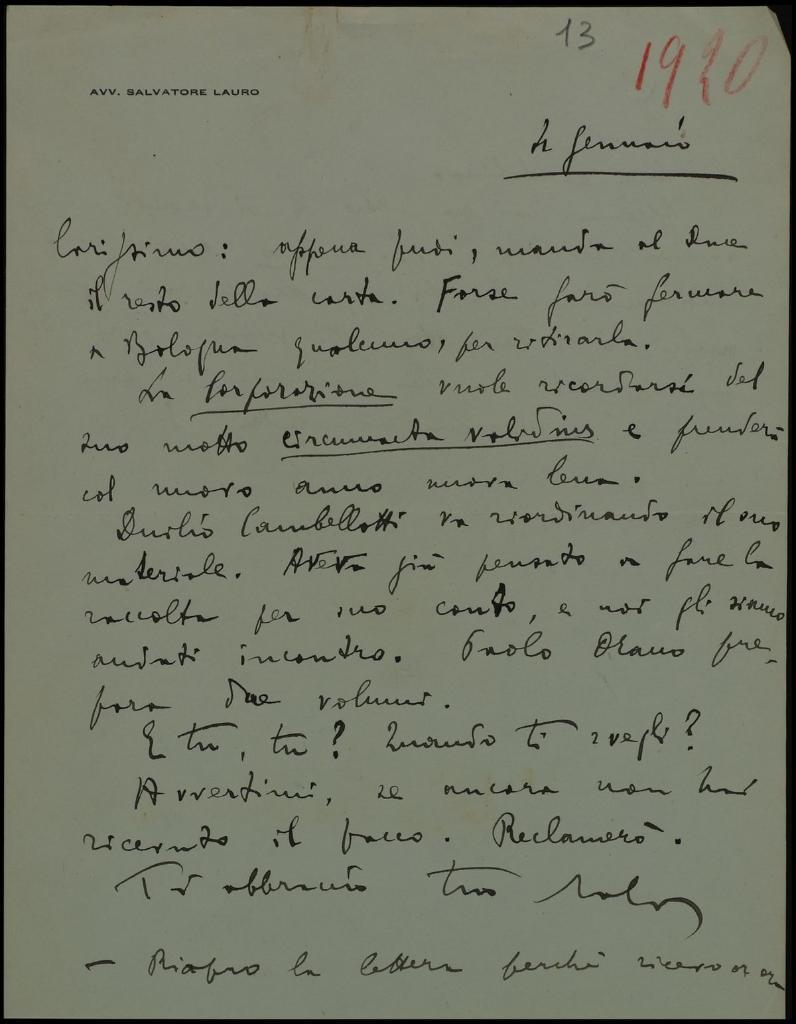 13
1920
AVV. SALVATORE LAURO
Gennaio
Carissimo: appena puoi, manda al Duce
il resto della carta. Forse farò fermare
a Bologna qualcuno, per ritirarla.
La Corporazione vuole ricordarsi del
suo motto circumacta validius e prenderà
col nuovo anno nuova lena.
Duilio Cambellotti va riordinando il suo
materiale. Aveva già pensato a fare la
raccolta per suo conto, e noi gli siamo
andati incontro. Paolo Orano pre-
para due volumi.
E tu, tu? Quando ti svegli?
Avvertimi, se ancora non hai
ricevuto il pacco. Reclamerò.
Ti abbraccio tuo
— Riapro la lettera perchè ricevo or ora